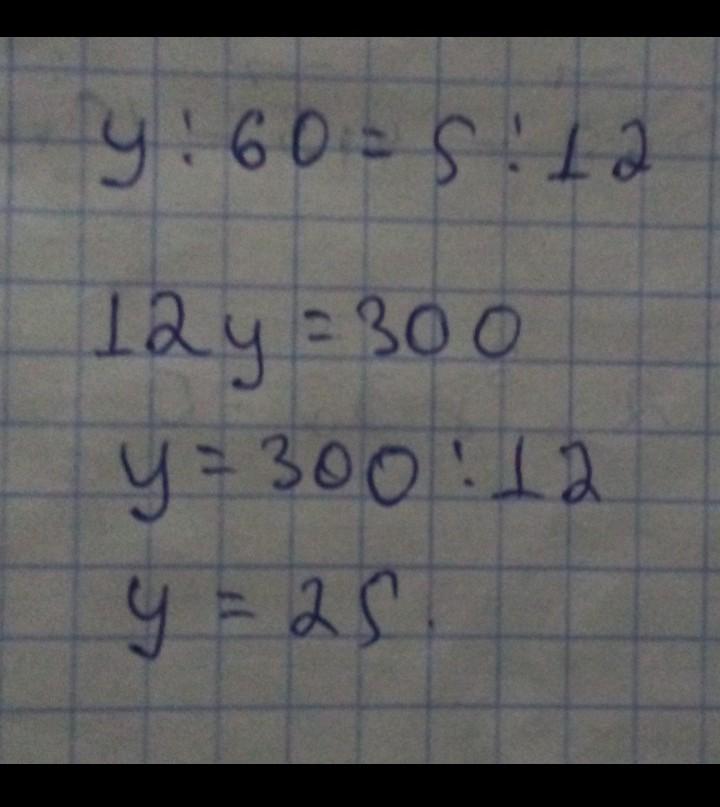 y : 60 = 5 : 12
12y = 300
y = 300 : 12
y = 25.